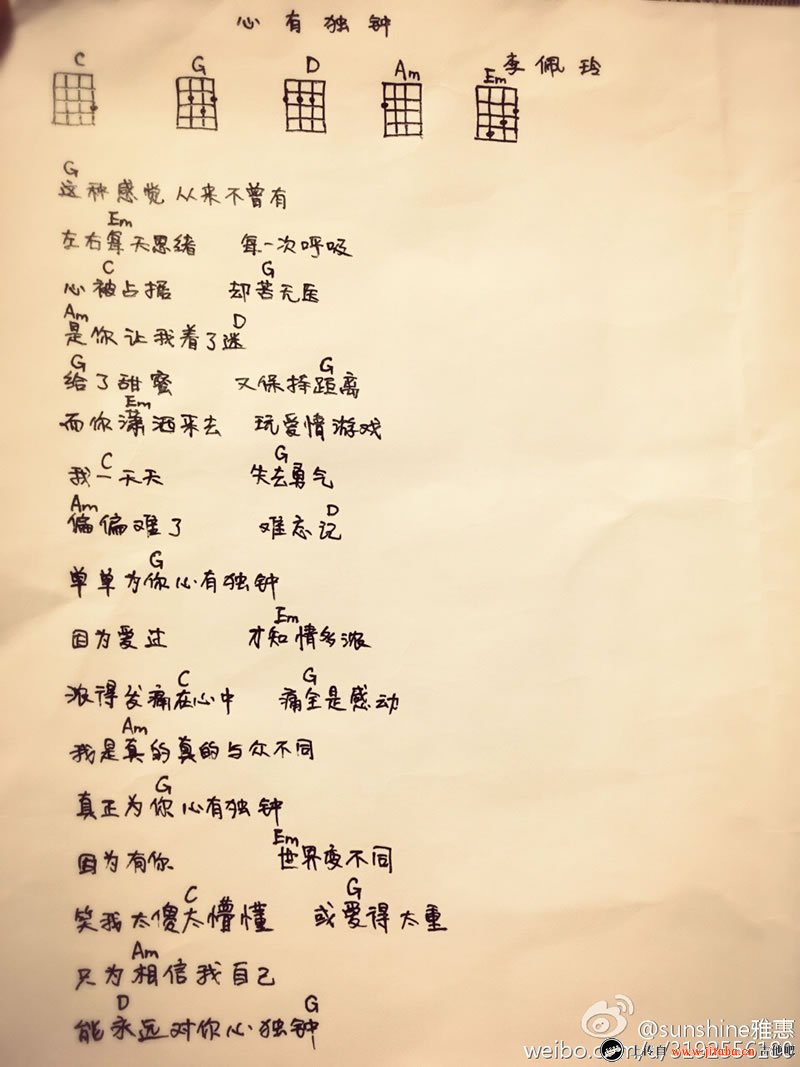 心有独钟
李佩玲
C G D Am Em
G
这种感觉从来不曾有
Em
左右每天思绪 每一次呼吸
C G
心被占据 却苦无医
Am D
是你让我着了迷
G G
给了甜蜜 又保持距离
Em
而你潇洒来去 玩爱情游戏
C G
我一天天 失去勇气
Am D
偏偏难了 难忘记
G
单单为你心有独钟
Em
因为爱过 才知情多浓
C G
浓得发痛在心中 痛全是感动
Am
我是真的真的与众不同
G
真正为你心有独钟
Em
因为有你 世界变不同
C G
笑我太傻太懵懂 或爱得太重
Am
只为相信我自己
D G
能永远对你心独钟
@sunshine雅惠
weibo.com/u/3192556180
上传自 www.jitaba.cn 吉他吧